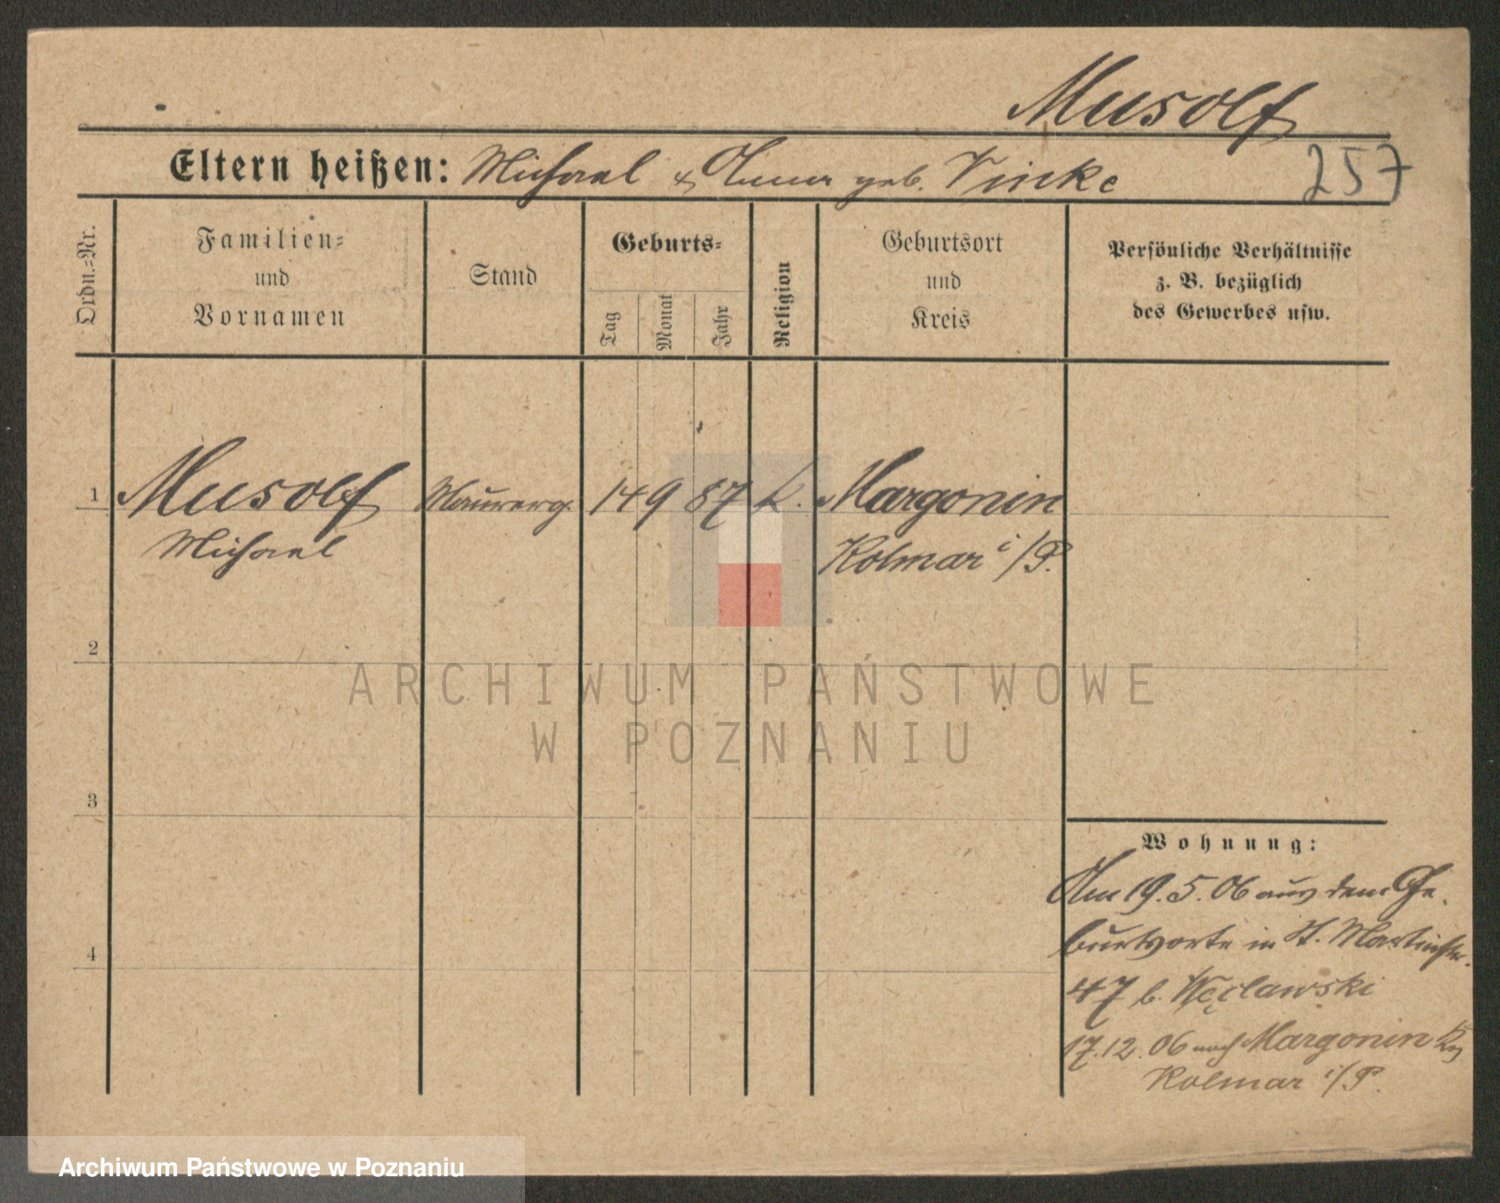 Musolf
Eltern heißen: Michael & Anna geb. Vinke
257
Ordn.=Nr.
Familien=
und
Vornamen
Stand
Geburts=
Tag
Monat
Jahr
Religion
Geburtsort
und
Kreis
Persönliche Verhältnisse
z. B. bezüglich
des Gewerbes usw.
1
Musolf
Michael
Maurerg.
14
9
87
k.
Margonin
Kolmar i/P.
2
ARCHIWUM PAŃSTWOWE
W POZNANIU
3
4
Wohnung:
Am 19.5.06 aus dem Ge-
burtsorte in St. Martinstr.
47 b. Węclawski
17.12.06 nach Margonin
Kolmar i/P.
Archiwum Państwowe w Poznaniu